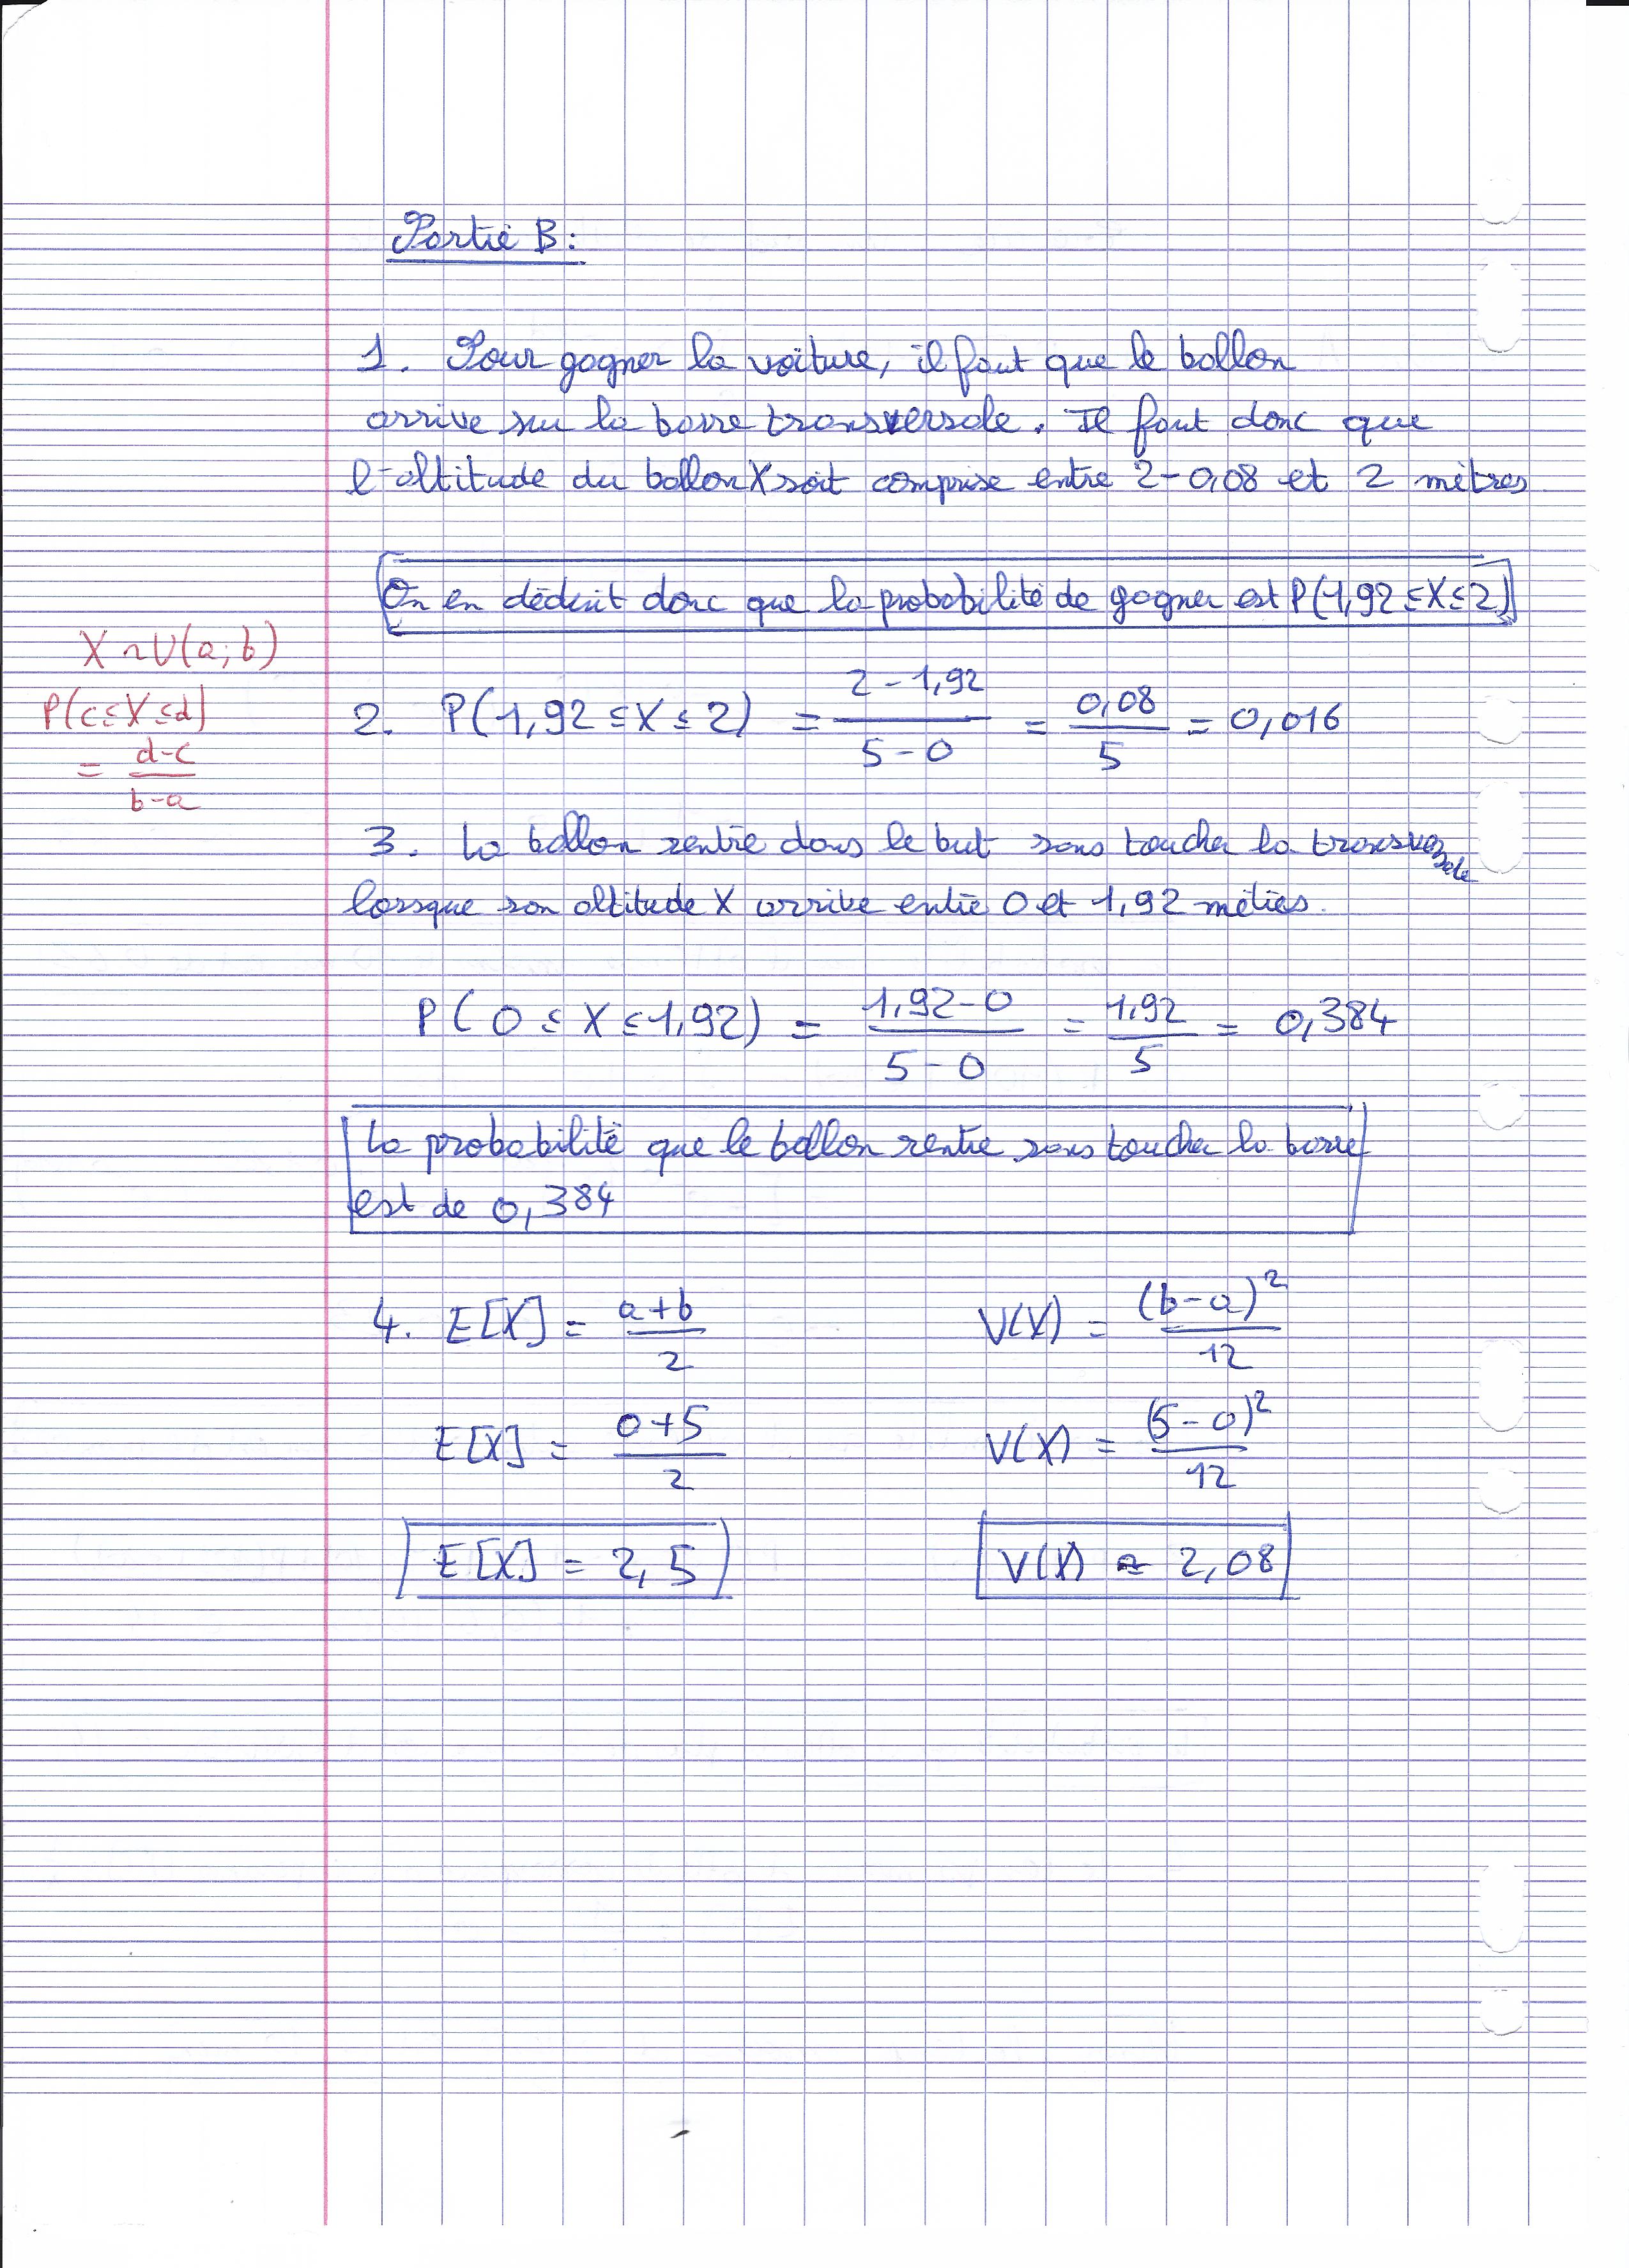 Partie B :
1. Pour gagner la voiture, il faut que le ballon
arrive sur la barre transversale. Il faut donc que
l'altitude du ballon X soit comprise entre 2-0,08 et 2 mètres
On en déduit donc que la probabilité de gagner est P(1,92 ≤ X ≤ 2)
X ~ U(a; b)
P(c ≤ X ≤ d)
= \frac{d-c}{b-a}
2. P(1,92 ≤ X ≤ 2) = \frac{2-1,92}{5-0} = \frac{0,08}{5} = 0,016
3. Le ballon rentre dans le but sans toucher la transversale
lorsque son altitude X arrive entre 0 et 1,92 mètres.
P(0 ≤ X ≤ 1,92) = \frac{1,92-0}{5-0} = \frac{1,92}{5} = 0,384
La probabilité que le ballon rentre sans toucher la barre
est de 0,384
4. E[X] = \frac{a+b}{2} V(X) = \frac{(b-a)^2}{12}
E[X] = \frac{0+5}{2} V(X) = \frac{(5-0)^2}{12}
E[X] = 2,5 V(X) ≈ 2,08